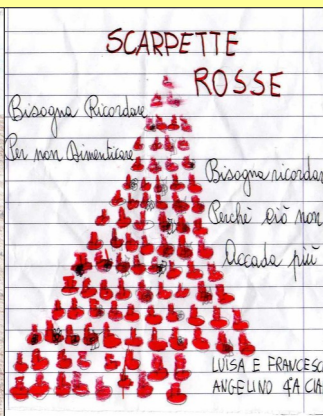 SCARPETTE
ROSSE
Bisogna Ricordare
Per non Dimenticare
Bisogna ricordar
Perchè ciò non
Accada più
LUISA E FRANCESC
ANGELINO 4ªA CLA